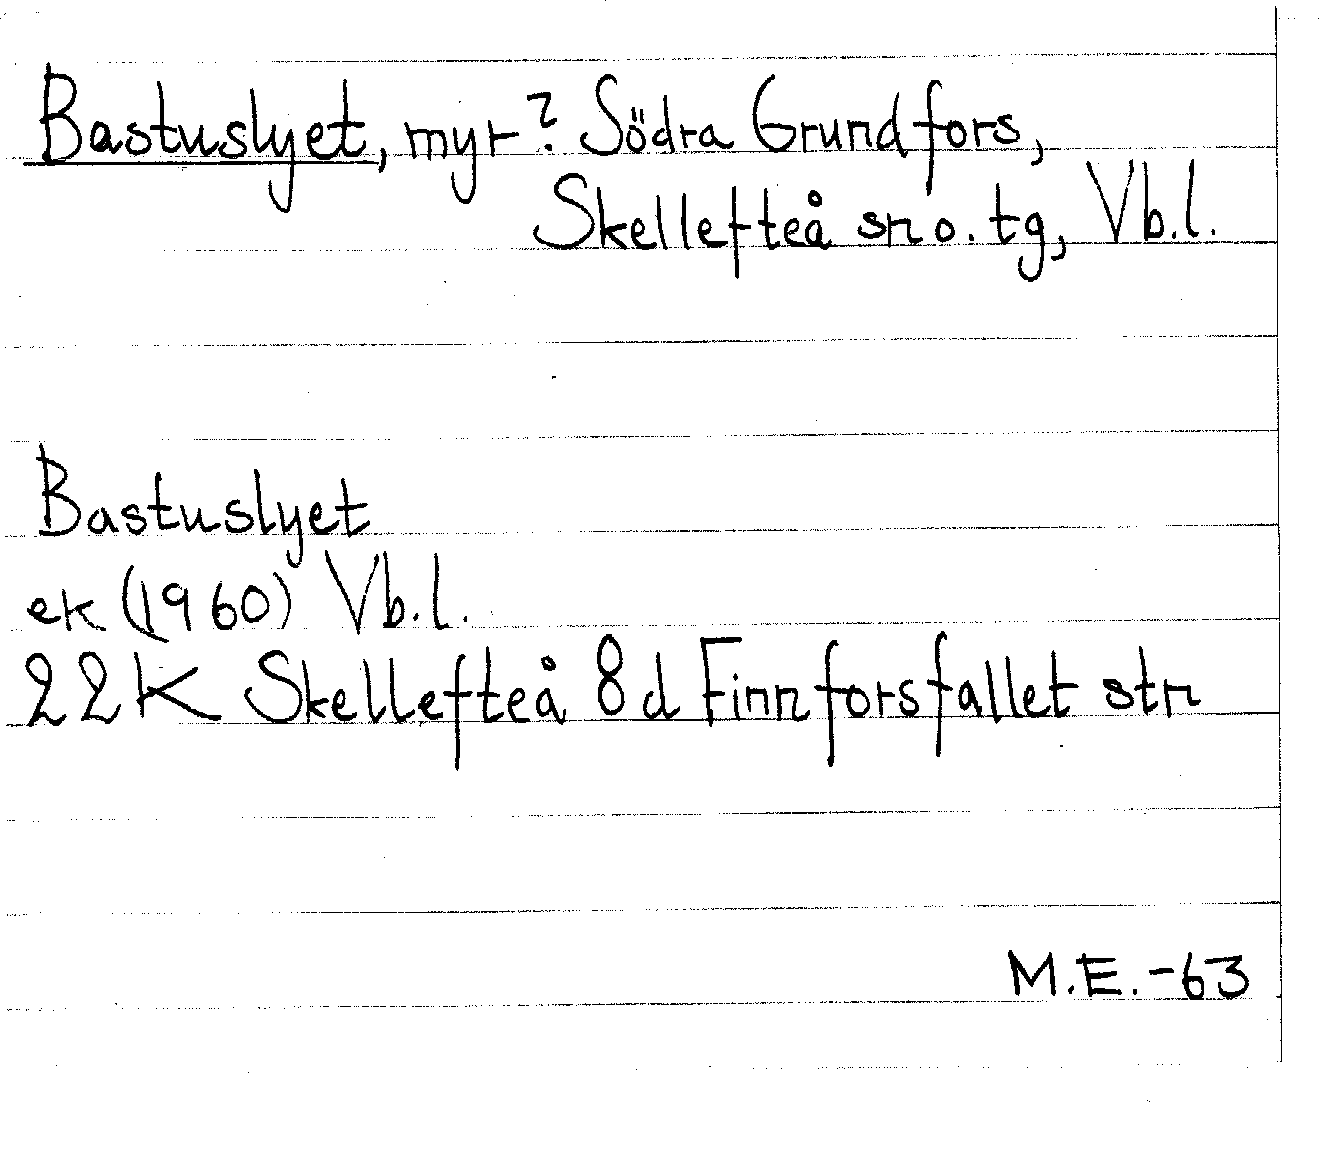 Bastuslyet, myr? Södra Grundfors,
Skellefteå sn o. tg, Vb.l.
Bastuslyet
ek (1960) Vb.l.
22K Skellefteå 8d Finnforsfallet str
M.E.-63